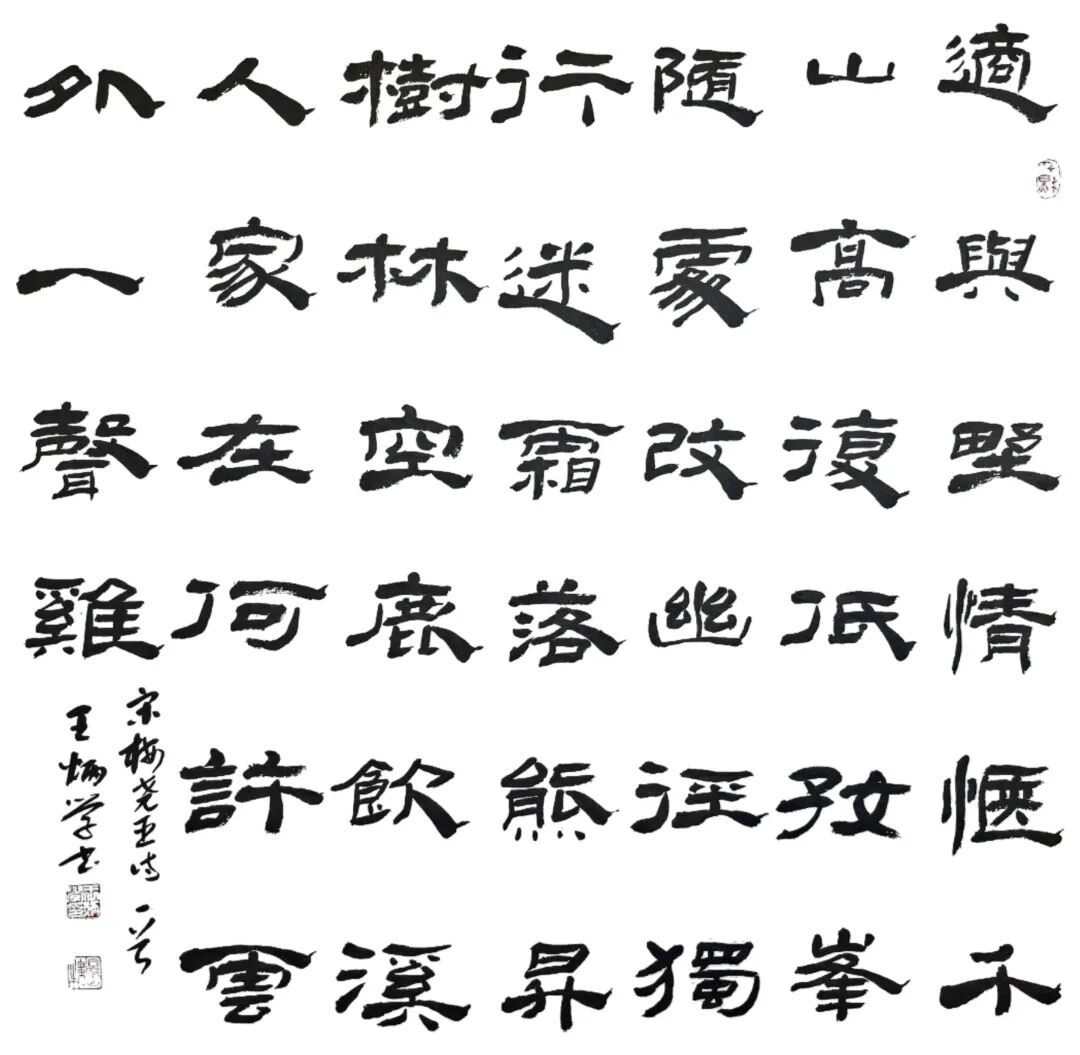 適與野情愜千
山高復低好峯
隨處改幽徑獨
行迷霜落熊昇
樹林空鹿飲溪
人家在何許雲
外一聲雞
宋梅尧臣诗一首
王炳学书